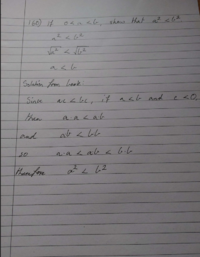 (60) if 0 < a < b, show that a² < b²
a² < b²
√a² < √b²
a < b
Solution from book
Since ac < bc, if a < b and
then a·a < ab
and ab < bb
so a·a < ab < b·b
therefore a² < b²